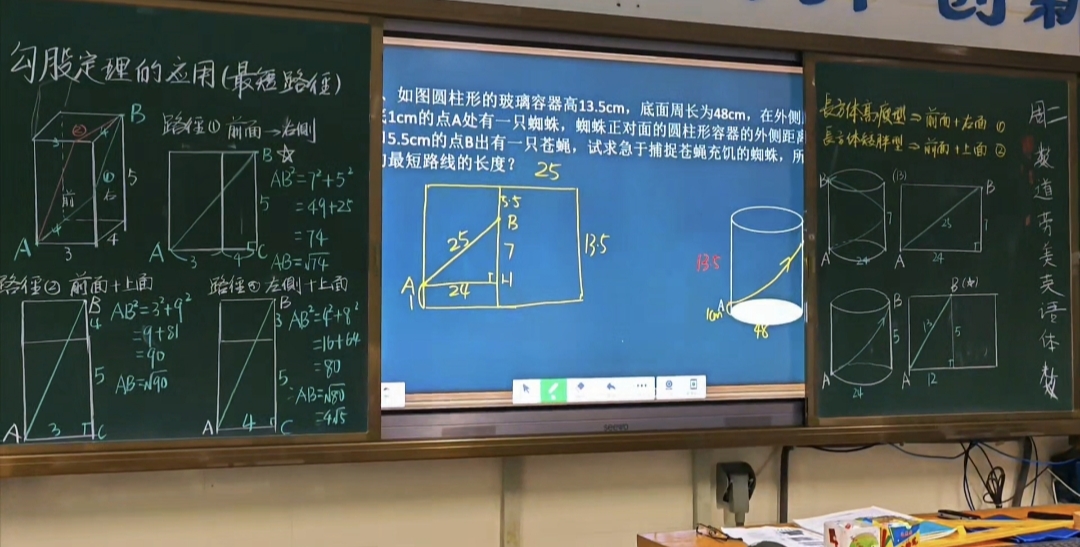 创新
勾股定理的应用(最短路径)
B
3
4
②
6
5
前
右
4
A
3
4
路径① 前面→右侧
B
☆
5
A
3
4
C
AB²=7²+5²
=49+25
=74
AB=√74
路径② 前面+上面
B
4
5
A
3
C
AB²=3²+9²
=9+81
=90
AB=√90
左侧+上面
B
3
5
A
4
C
AB²=4²+8²
=16+64
=80
AB=√80
=4√5
、如图圆柱形的玻璃容器高13.5cm，底面周长为48cm，在外侧
1cm的点A处有一只蜘蛛，蜘蛛正对面的圆柱形容器的外侧距离
5.5cm的点B出有一只苍蝇，试求急于捕捉苍蝇充饥的蜘蛛，所
最短路线的长度？
25
5.5
B
25
7
13.5
A
24
H
1
13.5
A
1cm
48
seewo
长方体高瘦型⇒前面+右面 ①
长方体矮胖型⇒前面+上面 ②
B
7
A
24
(B)
B
25
7
A
24
B
5
A
24
B(☆)
13
5
A
12
周二
数
道
劳
美
美
英
语
体
数